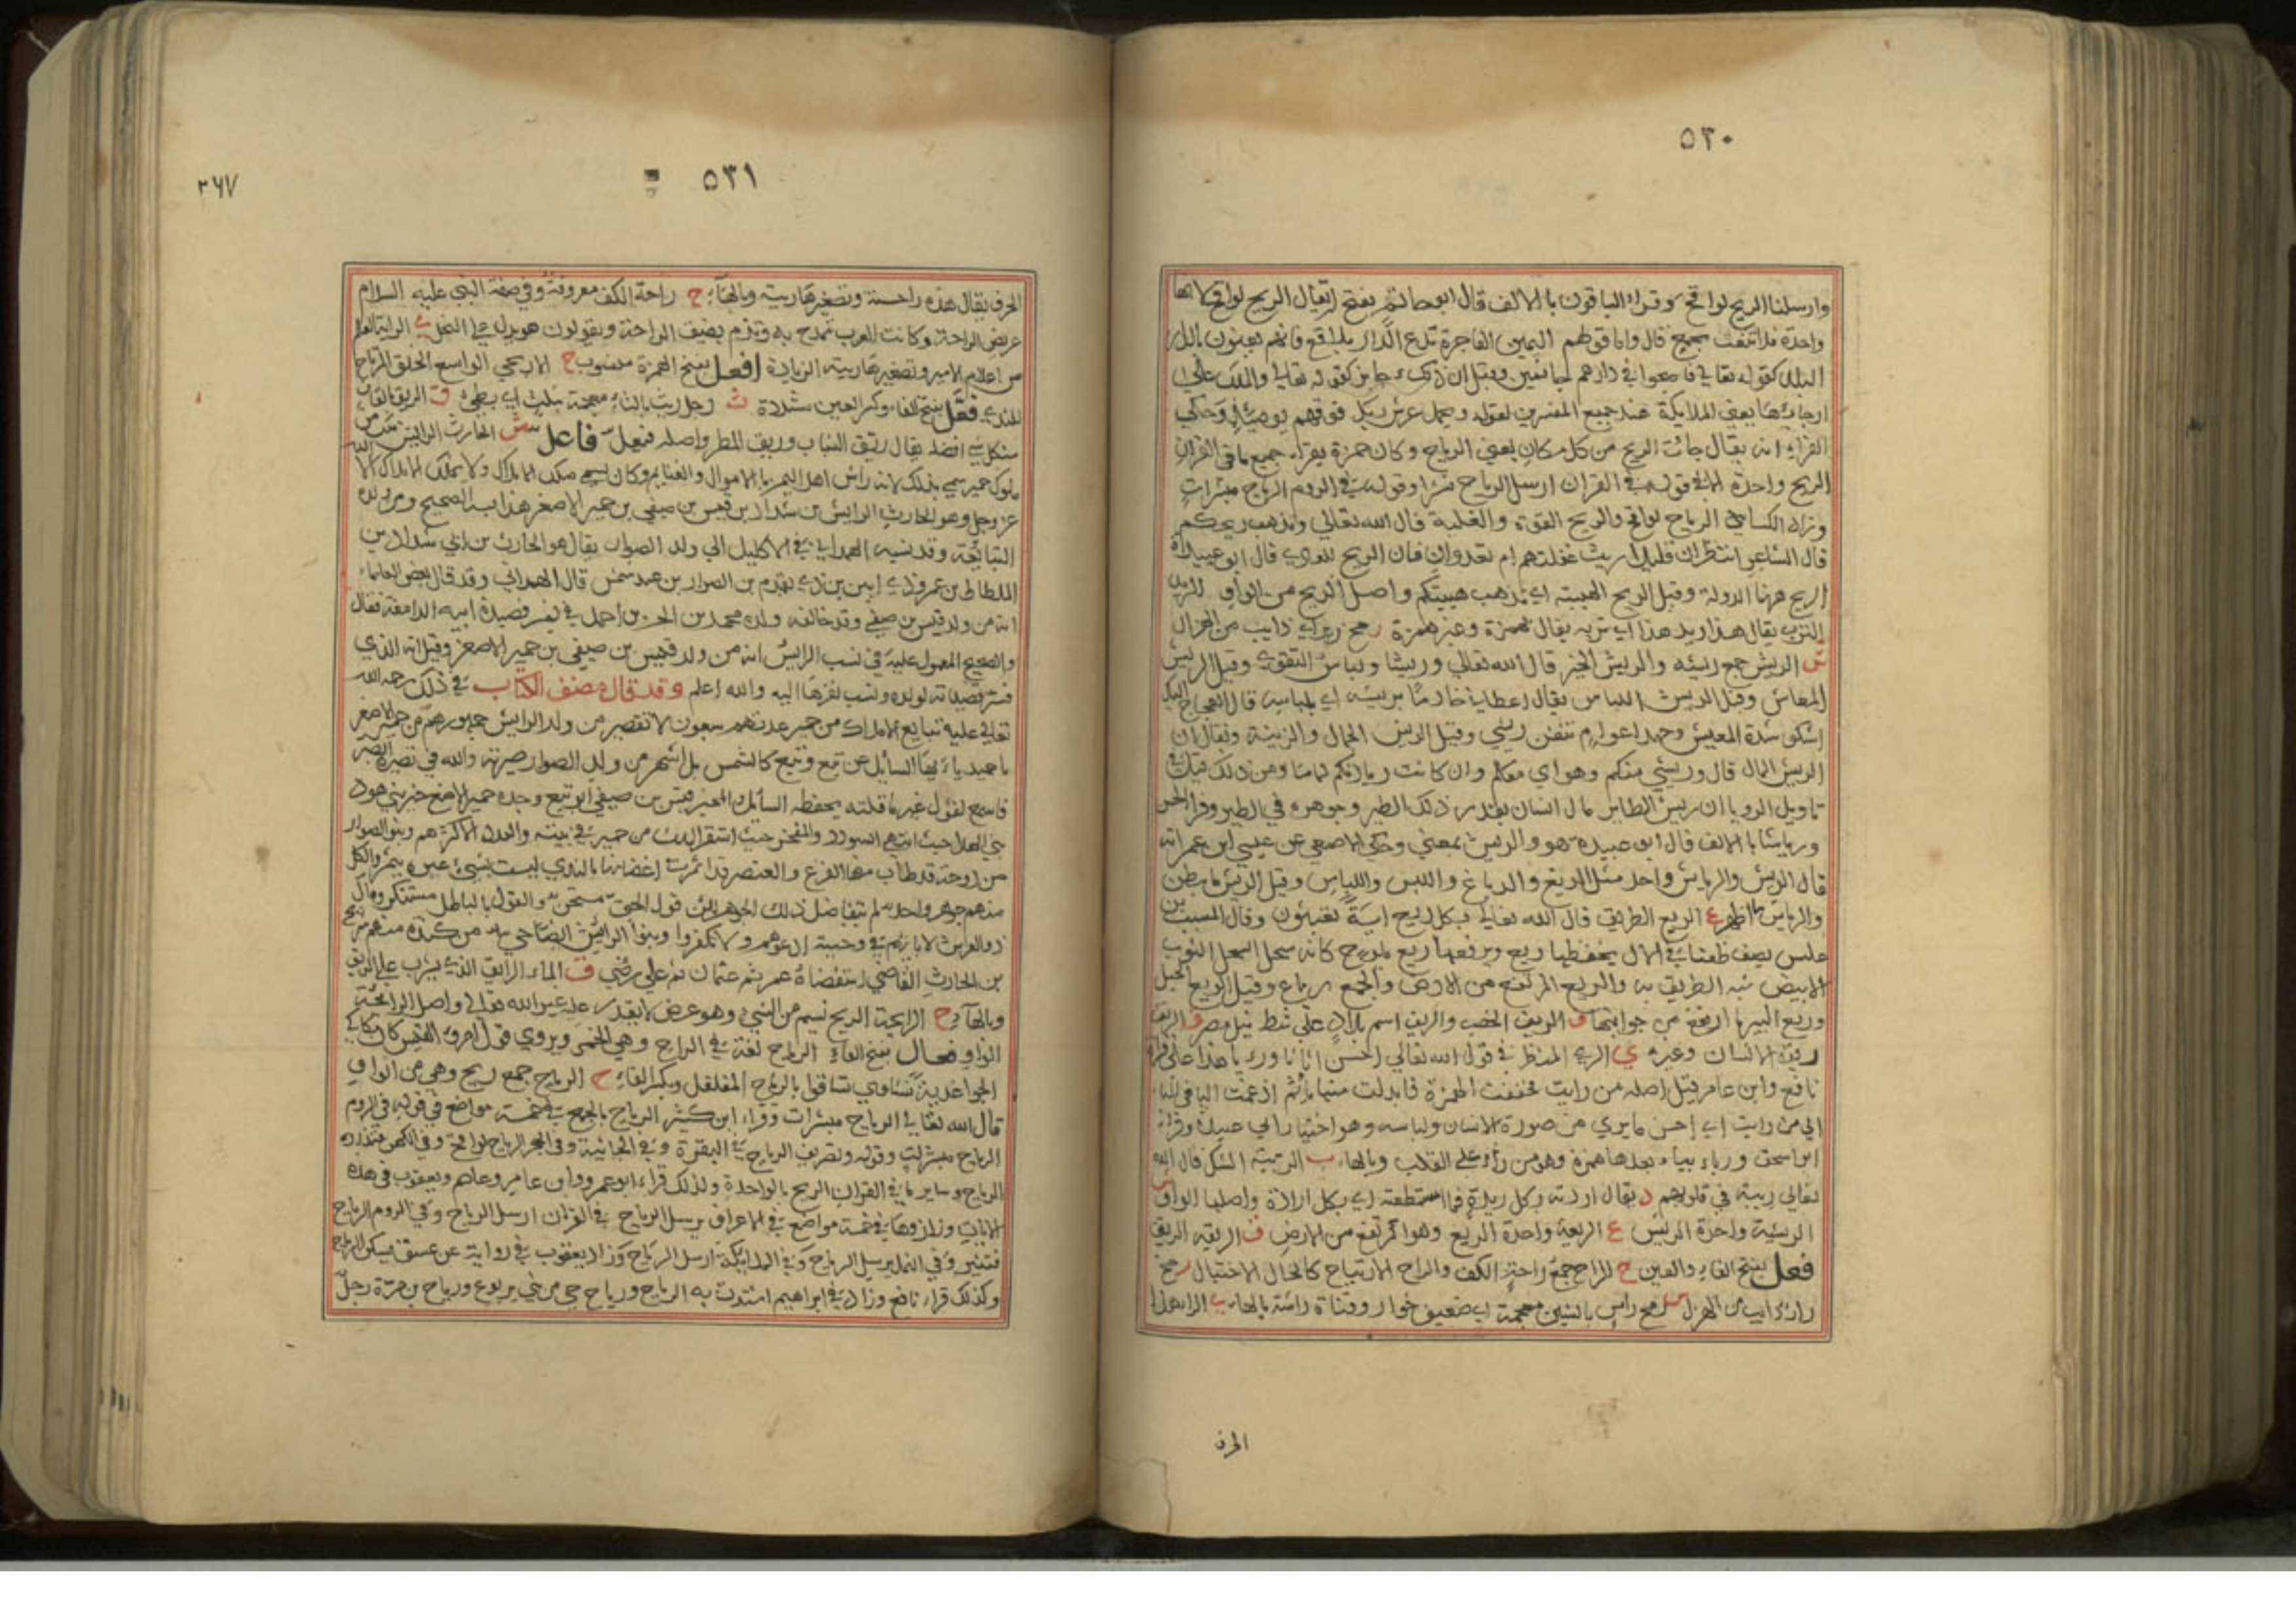 ٥٣٠
وارسلنا الريح لواقح وقراء الباقون بالالف قال ابو حاتم يقبح ان يقال الريح لواقح لانها
واحدة فلا تنعت بجمع قال واما قولهم اليمين الفاجرة تدع الدار بلاقع فانهم يعنون بالدار
البلد كقوله تعالى فاصبحوا في دارهم جاثمين وقيل ان ذلك جايز كقوله تعالى والملك على
ارجائها يعني الملايكة عند جميع المفسرين لقوله ويحمل عرش ربك فوقهم يومئذ وحكي
الفراء انه يقال جائت الريح من كل مكان يعني الرياح وكان حمزة يقراء جميع ما في القران
الريح واحدة الا في قوله في الفرقان ارسل الرياح نشرا وقوله في الروم الرياح مبشرات
وزاد الكسائي الرياح لواقح والريح القوة والغلبة قال الله تعالى وتذهب ريحكم
قال الشاعر انتظران قليلا ريث غفلتهم ام تعدوان فان الريح للعادي قال ابو عبيدة
الريح هاهنا الدولة وقيل الريح الهيبة اي تذهب هيبتكم واصل الريح من الواو
الترب يقال هذا ريد هذا اي تربه يقال بهمزة وغير همزة مخ رير اي ذايب من الهزال
ش الريش جمع ريشه والريش الخير قال الله تعالى وريشا ولباس التقوى وقيل الريش
المعاش وقيل الريش اللباس يقال اعطاني خادما بريشه اي بلباسه قال العجاج اليك
اشكو شدة المعيش وجهد اعوام نتفن ريشي وقيل الريش الجمال والزينة ويقال ان
الريش المال قال وريشي منكم وهواي معكم وان كانت زيارتكم لماما ومن ذلك قيل في
تاويل الرويا ان ريش الطاير مال انسان بقدر ذلك الطير وجوهره في الطير وقراء الحسن
ورياشا بالالف قال ابو عبيدة هو والريش بمعنى وحكي الاصمعي عن عيسى ابن عمر انه
قال الريش والرياش واحد مثل الدبغ والدباغ واللبس واللباس وقيل الريش ما بطن
والرياش ما ظهر ع الريع الطريق قال الله تعالى بكل ريع اية تعبثون وقال المسيب بن
علس يصف ظعنا في الال يخفضها ريع ويرفعها ريع يلوح كانه سحل السحل الثوب
الابيض شبه الطريق به والريع المرتفع من الارض والجمع رياع وقيل الريع الجبل
وريع البير ما ارتفع من جوانبها ف الريف الخصب والريف اسم بلاد على شط نيل مصر ق الريق
ريق الانسان وغيره ي الري المنظر في قول الله تعالى احسن اثاثا وريا هذا على قراءة
نافع وابن عامر قيل اصله من رايت فخففت الهمزة فابدلت منها ياء ثم ادغمت اليا في اليا
اي من رايت اي احسن ما يرى من صورة الانسان ولباسه وهو اختيار ابي عبيدة وقراء
ابو اسحق ورياء بياء بعدها همزة وهو من راء على القلب وبالهاء ب الريبة الشك قال الله
تعالى ريبة في قلوبهم د يقال اردته بكل ريدة فما استطعته اي بكل ارادة واصلها الواو
الريشة واحدة الريش ع الريعة واحدة الريع وهو المرتفع من الارض ق الريقه الريق
فعل بفتح الفاء والعين ح الراح جمع راحة الكف والراح الارتياح كالخال الاختيال ر مخ
رار ذايب من الهزل ش رمح راش بالشين معجمة اي ضعيف خوار وقناة راشة بالهاء ي الراي هذا
الحرف
٥٣١
٣٦٧
الحرف يقال هذه راحسنة وتصغيرها ريية وبالهاء ح راحة الكف معروفة وفي صفة النبي عليه السلام
عريض الراحة وكانت العرب تمدح به وتذم بضيق الراحة ويقولون هو يدل على البخل ي الراية العلم
من اعلام الامير وتصغيرها ريية الزيادة افعل بفتح الهمزة منسوب ح الاريحي الواسع الخلق المرتاح
للندي فعل بفتح الفاء وكسر العين مشددة ث رجل ريث بالثاء معجمة بثلث اي بطيء ق الريق الفاق
من كل شي افضله يقال ريق الشباب وريق المطر واصله فيعل فاعل ش الحارث الرايش ملك من
ملوك حمير سمي بذلك لانه راش اهل اليمن بالاموال والغنايم وكان يسمى ملك الاملاك ولا يملك الاملاك الا الله
عز وجل وهو الحارث الرايش بن شداد بن قيس بن صيفي بن حمير الاصغر هذا نسبه الصحيح ومن ولده
التبابعة وقد نسبه الهمداني في الاكليل الى ولد الصوار يقال هو الحارث بن ابي شداد بن
الملطاط بن عمرو ذي ابين بن ذي يقدم بن الصوار بن عبد شمس قال الهمداني وقد قال بعض العلماء
انه من ولد قيس بن صيفي وقد خالفه ولده محمد بن الحسن بن احمد في تفسير قصيدة ابيه الدامغة فقال
والصحيح المعول عليه في نسب الرايش انه من ولد قيس بن صيفي بن حمير الاصغر وقيل انه الذي
فسر قصيدته لولده ونسب تفسيرها اليه والله اعلم وقد قال مصنف الكتاب في ذلك رحمه الله
تعالى عليه تبايع الاملاك من حمير عدتهم سبعون لا تقصر من ولد الرايش جمهورهم من حمير الاصغر
يا ايها السايل عن تبع وتبع كالشمس بل اشهر من ولد الصوار صيرته والله في تصيره
فاسمع لقول غير ما قلته يحفظه السايل والمخبر قيس بن صيفي ابو تبع وجده حمير الاصغر خير بني هود
بني الهال حيث انتهى السودد والمفخر حيث استقر الملك من حمير في بيته والعدد الاكثر هم وبنو الصوار
من دوحة قد طاب منها الفرع والعنصر قد اثمرت اغصانها بالذي ليست بشيء غيره يثمر والكل
منهم جوهر واحد لم يتفاضل ذلك الجوهر لكن قول الحق مستحسن والقول بالباطل مستنكر وقال
بن الحارث القاضي استقضاه عمر ثم عثمان ثم علي رضي ق الماء الرايق الذي يشرب على الريق
وبالهاء ح الرايحة الريح نسيم من الشي وهو عرض لا يقدر عليه غير الله تعالى واصل الرايحة
الواو فعال بفتح الفاء الرياح لغة في الراح وهي الخمر ويروي قول امرؤ القيس كان مكاكي
الجواء غدية نشاوي تساقوا بالرياح المفلفل وبكسر الفاء ح الرياح جمع ريح وهي من الواو
قال الله تعالى الرياح مبشرات وقراء ابن كثير الرياح بالجمع في خمسة مواضع في قوله في الروم
الرياح مبشرات وقوله وتصريف الرياح في البقرة وفي الجاثية وفي الحجر الرياح لواقح وفي الكهف تذروه
الرياح وساير ما في القران الريح بالواحدة وكذلك قراء ابو عمرو وابن عامر وعاصم ويعقوب في هذه
الايات وزادوها في خمسة مواضع في الاعراف يرسل الرياح في الفرقان ارسل الرياح وفي الروم الرياح
فتثير وفي النمل يرسل الرياح وفي الملايكة ارسل الرياح وزاد يعقوب في رواية عن عسق يسكن الرياح
وكذلك قراء نافع وزاد في ابراهيم اشتدت به الرياح ورياح حي من بني يربوع ورياح بن مرة رجل